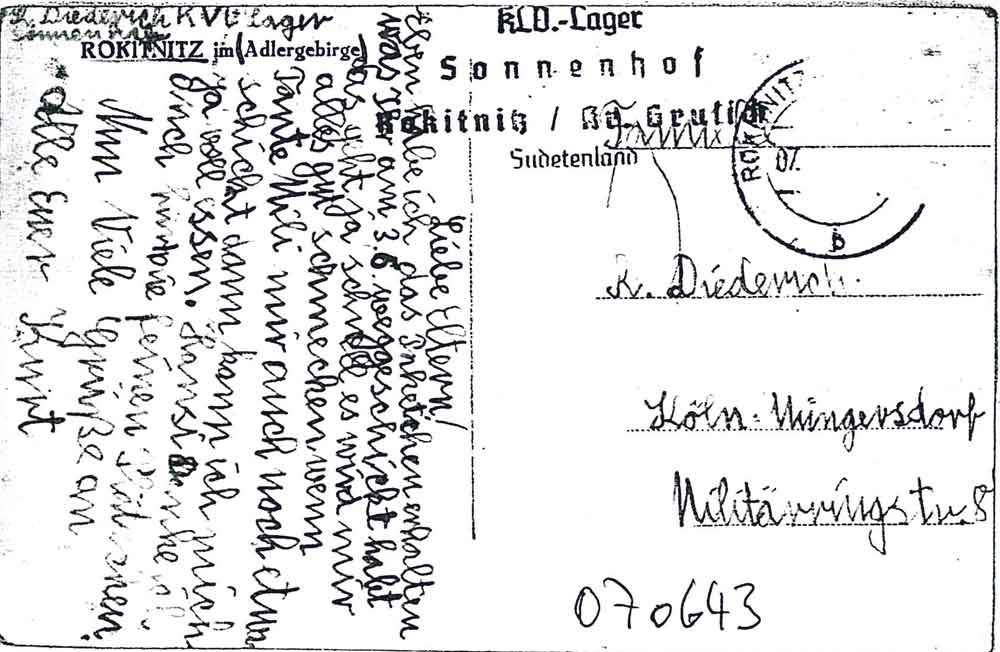 K. Diederich KVL Lager
ROKITNITZ im (Adlergebirge)
KLD.-Lager
Sonnenhof
Rokitnitz / Bg. Grulich
Sudetenland
Familie
K. Diederich.
Köln-Müngersdorf
Militärringstr. 8
070643
ROKITNITZ
07.
b
Liebe Eltern!
Eben habe ich das Paketchen erhalten
was Ihr am 3.6. weggeschickt habt
das geht ja schnell es wird mir
alles gut schmecken wenn
Tante Mili mir auch noch etwas
schickt dann kann ich mich
ja voll essen. Hansi danke ich
durch für die feinen Plätzchen
Nun Viele Grüße an
Alle Euer Kurt